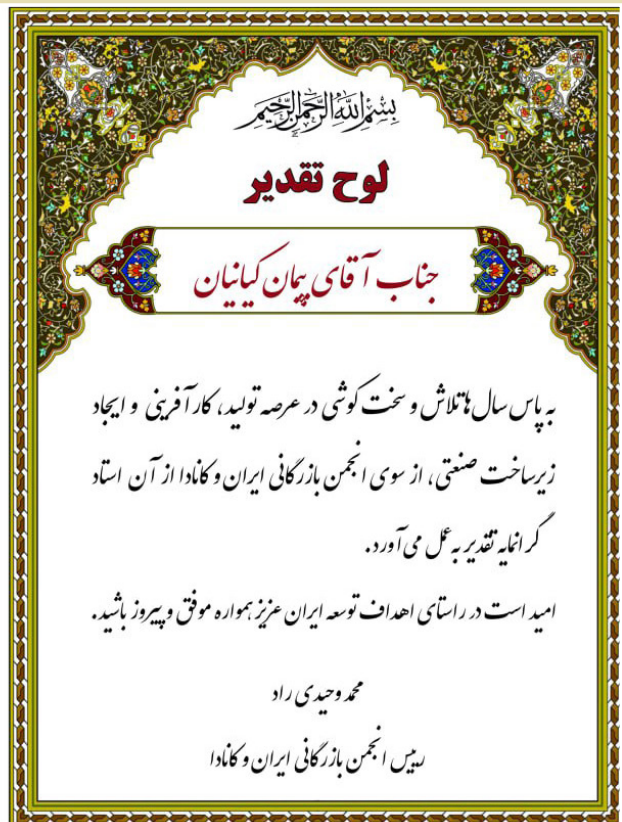 بسم الله الرحمن الرحیم
لوح تقدیر
جناب آقای پیمان کیانیان
به پاس سال ها تلاش و سخت کوشی در عرصه تولید، کارآفرینی و ایجاد
زیرساخت صنعتی، از سوی انجمن بازرگانی ایران و کانادا از آن استاد
گرانمایه تقدیر به عمل می آورد.
امید است در راستای اهداف توسعه ایران عزیز همواره موفق و پیروز باشید.
محمد وحیدی راد
رییس انجمن بازرگانی ایران و کانادا